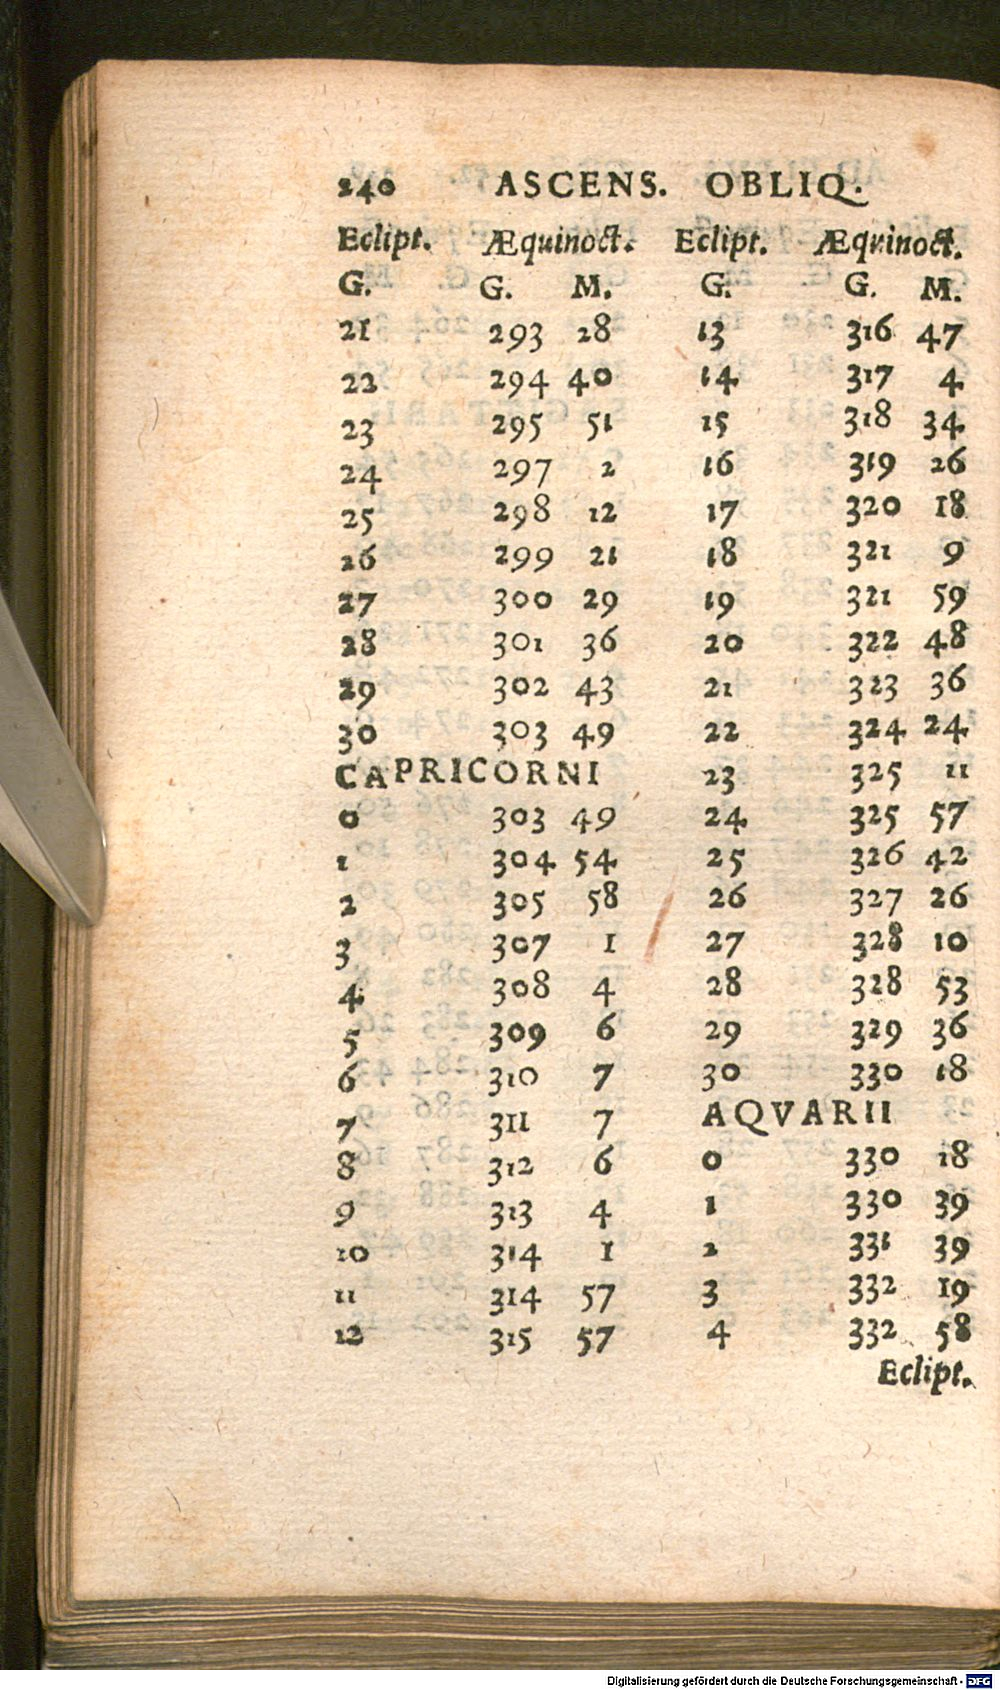 240 ASCENS. OBLIQ.
Eclipt. Æquinoct. Eclipt. Æquinoct.
G. G. M. G. G. M.
21 293 28 13 316 47
22 294 40 14 317 4
23 295 51 15 318 34
24 297 2 16 319 26
25 298 12 17 320 18
26 299 21 18 321 9
27 300 29 19 321 59
28 301 36 20 322 48
29 302 43 21 323 36
30 303 49 22 324 24
CAPRICORNI 23 325 11
0 303 49 24 325 57
1 304 54 25 326 42
2 305 58 26 327 26
3 307 1 27 328 10
4 308 4 28 328 53
5 309 6 29 329 36
6 310 7 30 330 18
7 311 7 AQVARII
8 312 6 0 330 18
9 313 4 1 330 39
10 314 1 2 331 39
11 314 57 3 332 19
12 315 57 4 332 58
Eclipt.
Digitalisierung gefördert durch die Deutsche Forschungsgemeinschaft - DFG